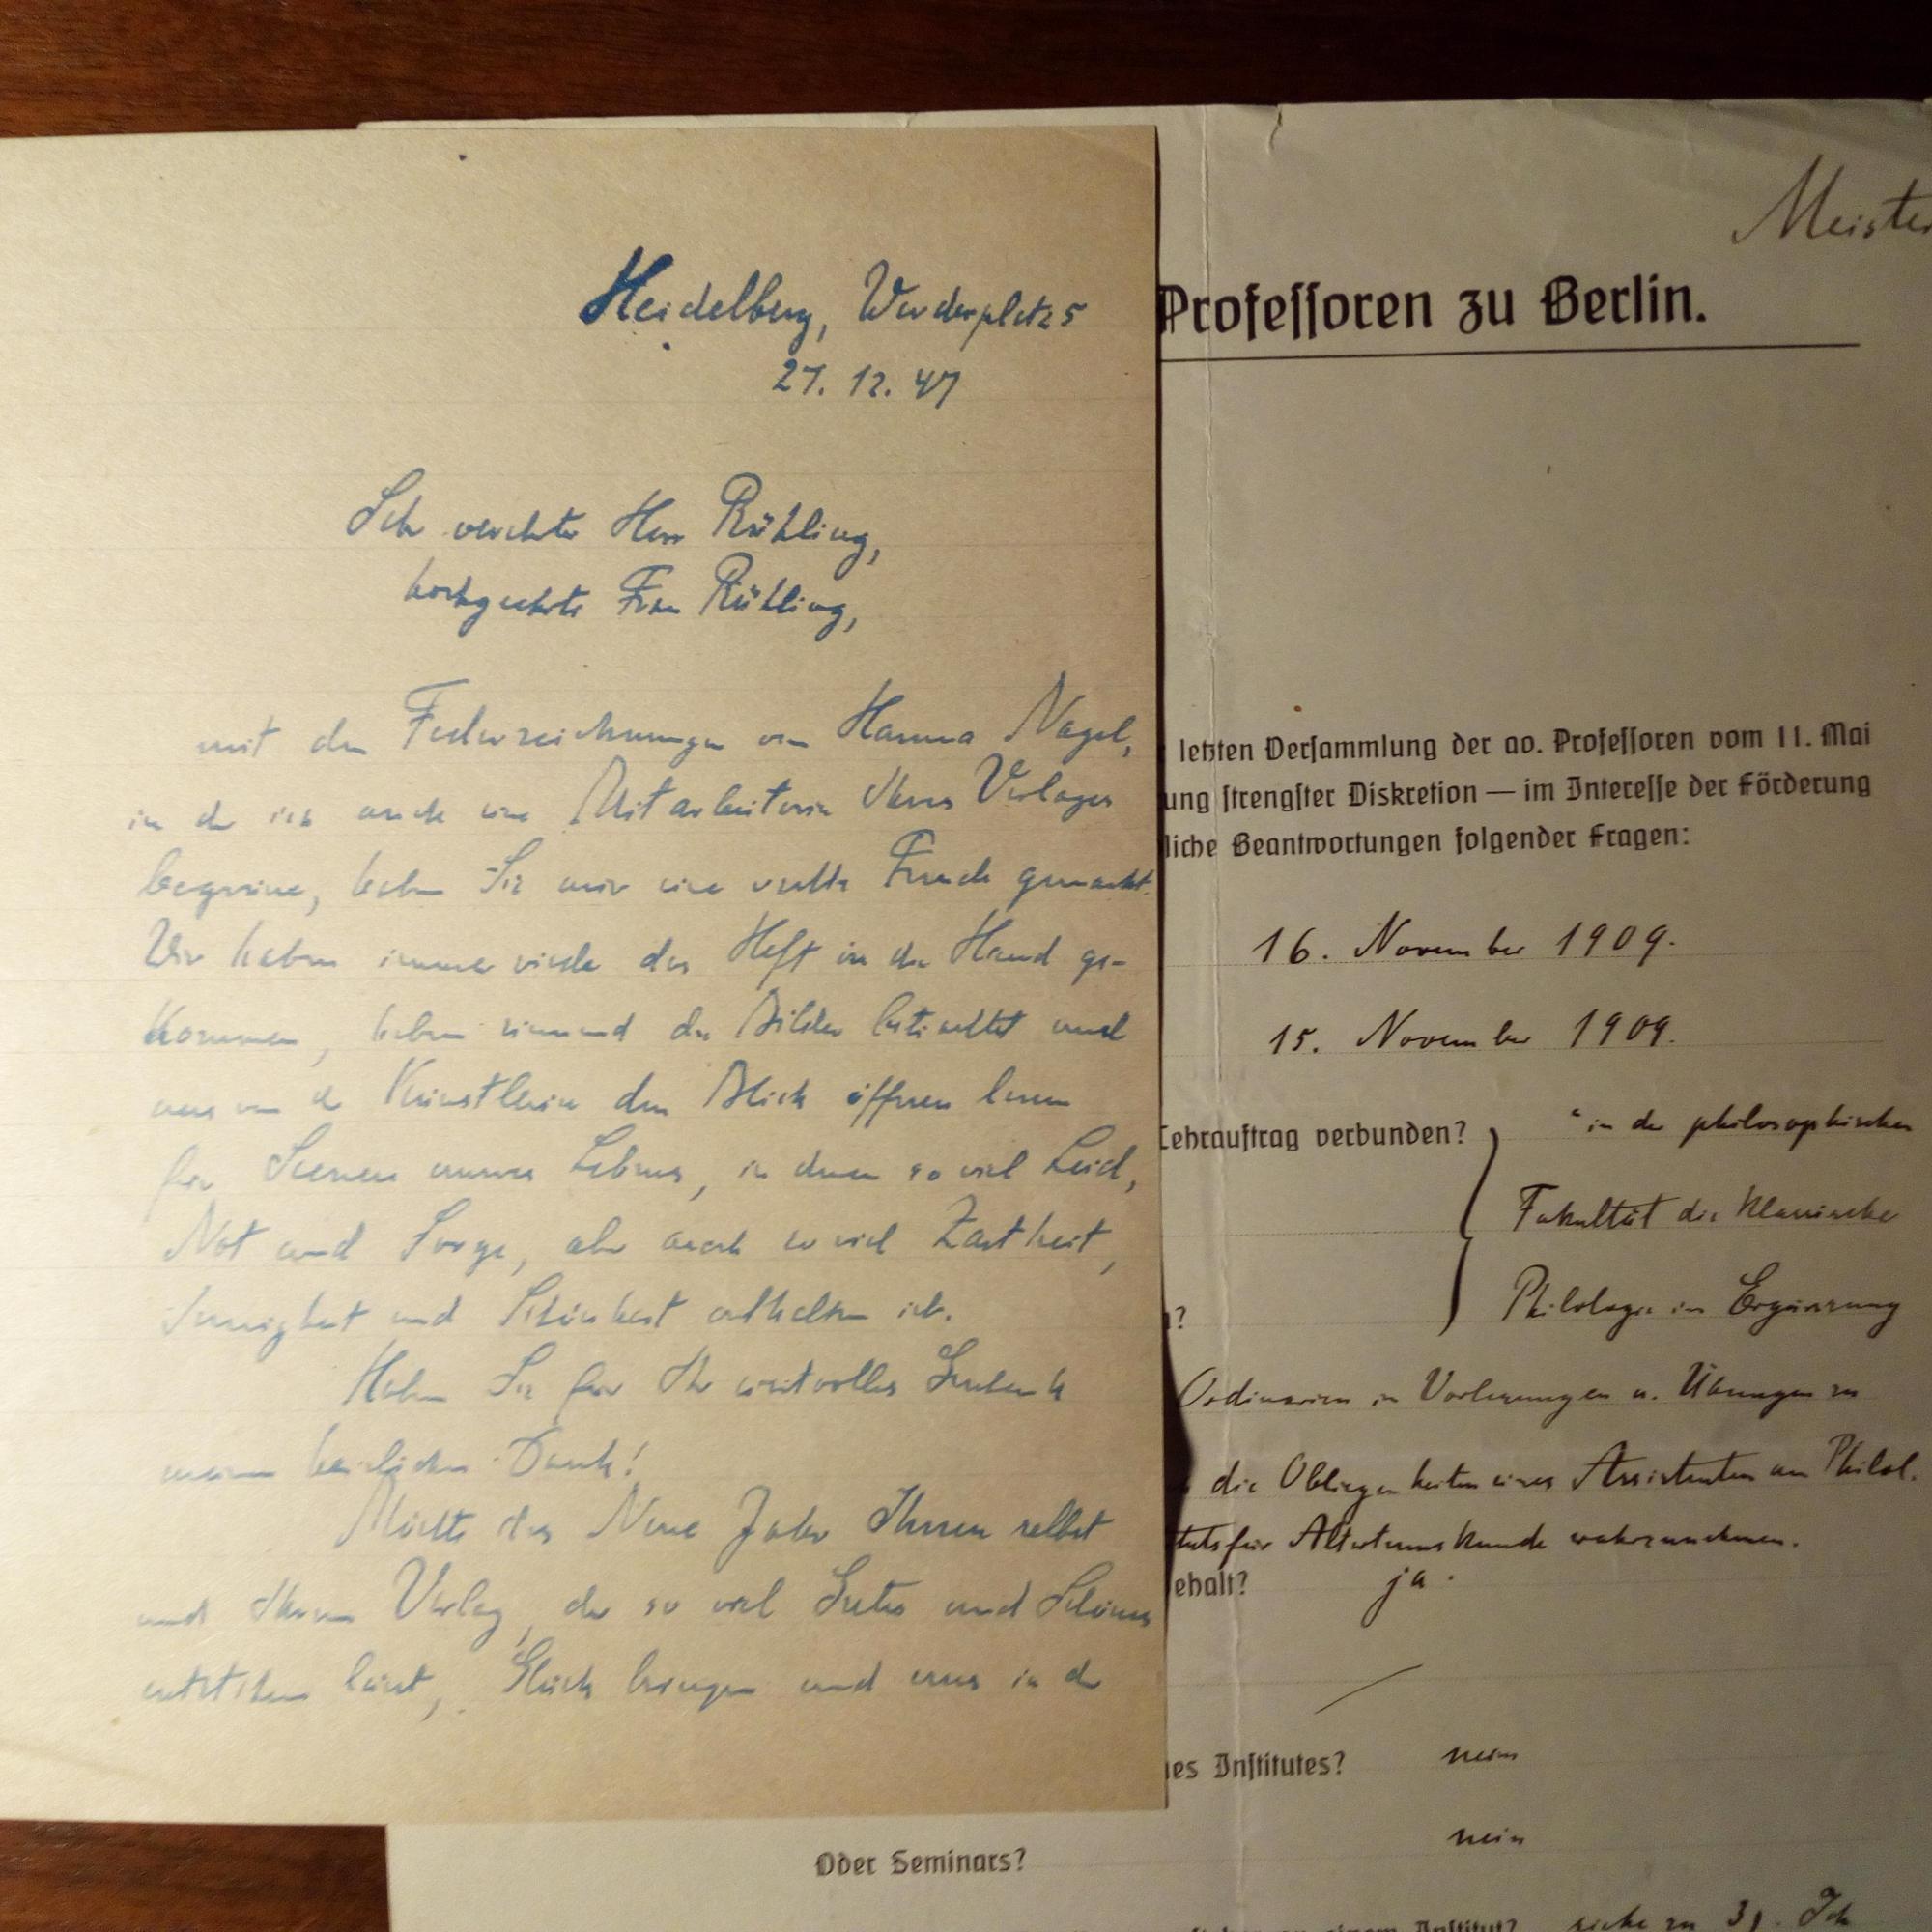 Heidelberg, Werderplatz 5
27. 12. 47
Sehr verehrter Herr Rühling,
hochgeehrte Frau Rühling,
mit den Federzeichnungen von Hanna Nagel,
in der ich auch eine Mitarbeiterin Ihres Verlages
begrüsse, haben Sie mir eine rechte Freude gemacht.
Wir haben immer wieder das Heft in die Hand ge-
nommen, haben sinnend die Bilder betrachtet und
uns von der Künstlerin den Blick öffnen lassen
für Szenen unseres Lebens, in denen so viel Leid,
Not und Sorge, aber auch so viel Zartheit,
Innigkeit und Schönheit enthalten ist.
Haben Sie für Ihr wertvolles Geschenk
meinen herzlichen Dank!
Möchte das Neue Jahr Ihnen selbst
und Ihrem Verlag, der so viel Gutes und Schönes
entstehen lässt, Glück bringen und uns in der
Meister
Professoren zu Berlin.
letzten Versammlung der ao. Professoren vom 11. Mai
ung strengster Diskretion — im Interesse der Förderung
liche Beantwortungen folgender Fragen:
16. November 1909.
15. November 1909.
Lehrauftrag verbunden? in der philosophischen
Fakultät die klassische
Philologie in Ergänzung
Ordinarien in Vorlesungen u. Übungen zu
die Obliegenheiten eines Assistenten am Philol.
tuts für Altertumskunde wahrzunehmen.
ehalt? ja.
nes Institutes? nein
Oder Seminars? nein
an einem Institut? siehe zu 3). Ich